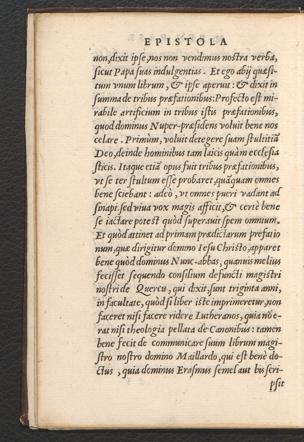 EPISTOLA
non, dixit ipse, nos non vendimus nostra verba,
sicut Papa suas indulgentias. Et ego abij quæsi-
tum vnum librum, & ipse aperuit: & dixit in
summa de tribus præfationibus: Profectò est mi-
rabile artificium in tribus istis præfationibus,
quod dominus Nuper-præsidens voluit bene nos
celare. Primùm, voluit detegere suam stultitiã
Deo, deinde hominibus tam laicis quàm ecclesia
sticis. Itaque etiã opus fuit tribus præfationibus,
vt se ter stultum esse probaret, quãquam omnes
bene sciebant: adeò, vt omnes pueri vadant ad
sinapi. sed viua vox magis afficit, & certè bene
se iactare potest quòd superauit spem omnium.
Et quòd attinet ad primam prædictarum præfatio
num, quæ dirigitur domino Iesu Christo, apparet
bene quòd dominus Nunc-abbas, quamuis melius
fecisset sequendo consilium defuncti magistri
nostri de Quercu, qui dixit, sunt triginta anni,
in facultate, quòd si liber iste imprimeretur, non
faceret nisi facere ridere Lutheranos, quia nõ e-
rat nisi theologia pellata de Canonibus: tamen
bene fecit de communicare suum librum magi-
stro nostro domino Maillardo, qui est benè do-
ctus, quia dominus Erasmus semel aut bis scri-
psit